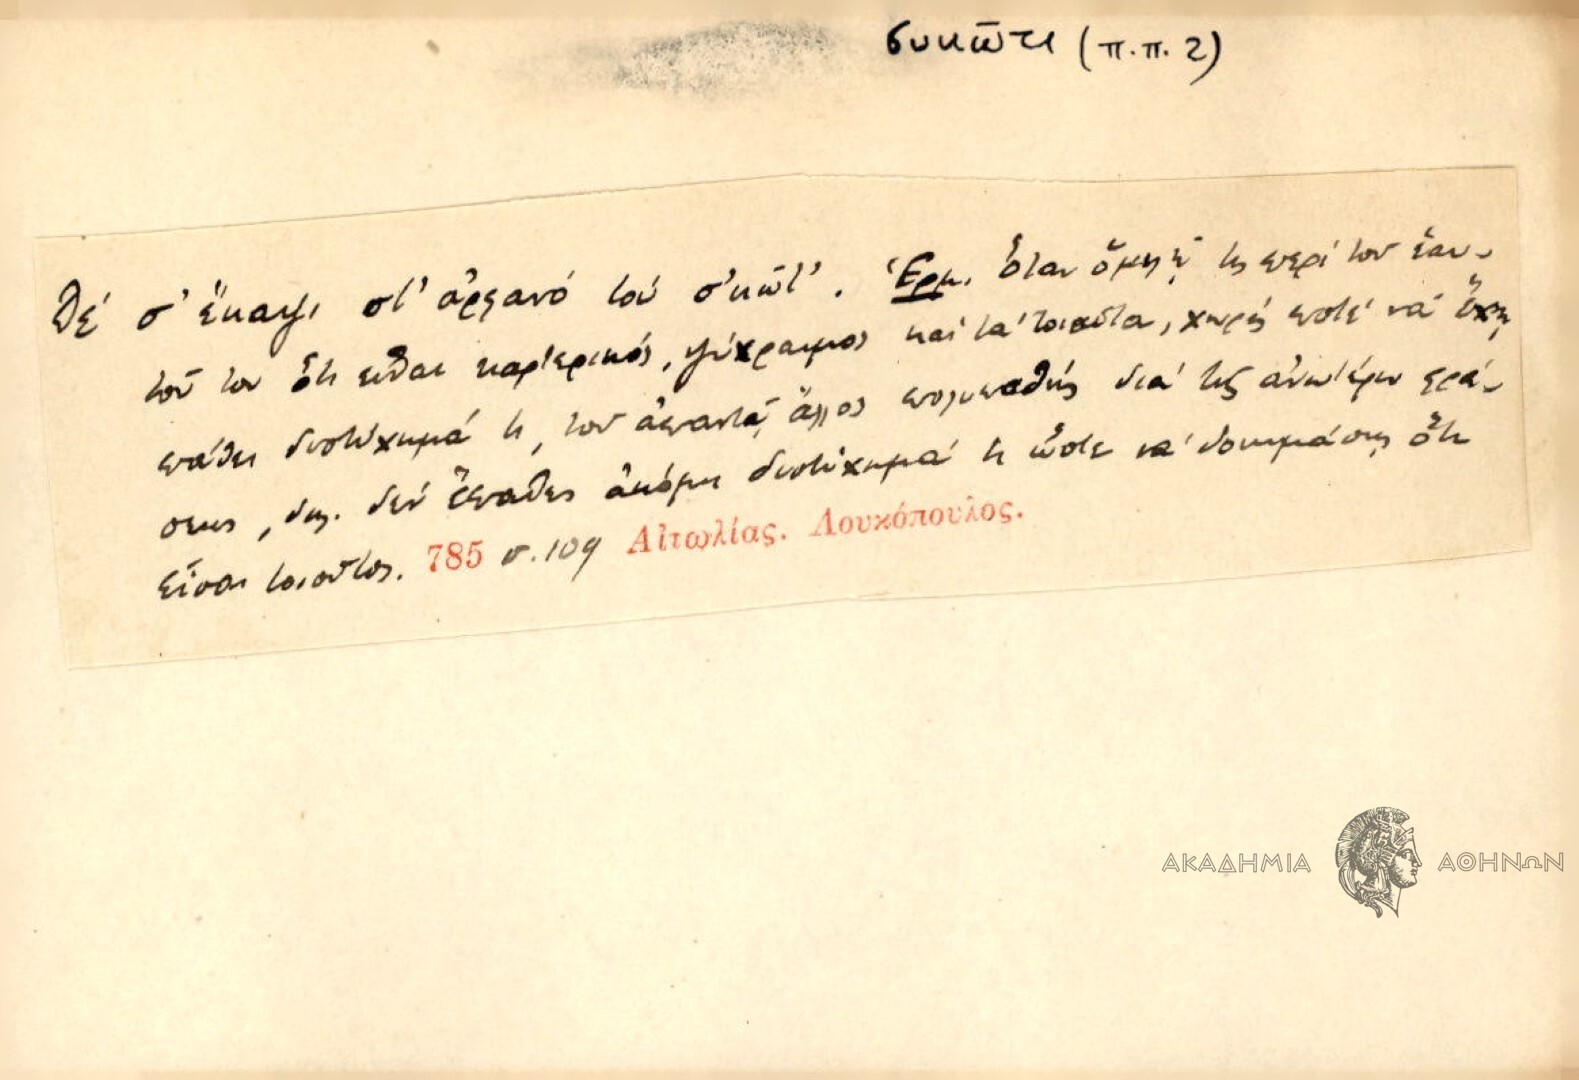 συκῶτι (π.π. 2)
Δέ σ' ἔκαψι στ' ἀργανό τοὺ σ'κῶτ'. Ἑρμ. ὅταν ὁμιλῇ τις περὶ τοῦ ἑαυ-
τοῦ του ὅτι εἶναι καρτερικός, ψύχραιμος καὶ τὰ τοιαῦτα, χωρὶς ποτὲ νὰ ἔχῃ
πάθει δυστύχημά τι, τοῦ ἀπαντᾷ ἄλλος πολυπαθὴς διὰ τῆς ἀνωτέρω φρά-
σεως, δηλ. δὲν ἔπαθες ἀκόμη δυστύχημά τι ὥστε νὰ δοκιμάσῃς ὅτι
εἶσαι τοιοῦτος. 785 σ. 109 Αἰτωλίας. Λουκόπουλος.
ΑΚΑΔΗΜΙΑ ΑΘΗΝΩΝ